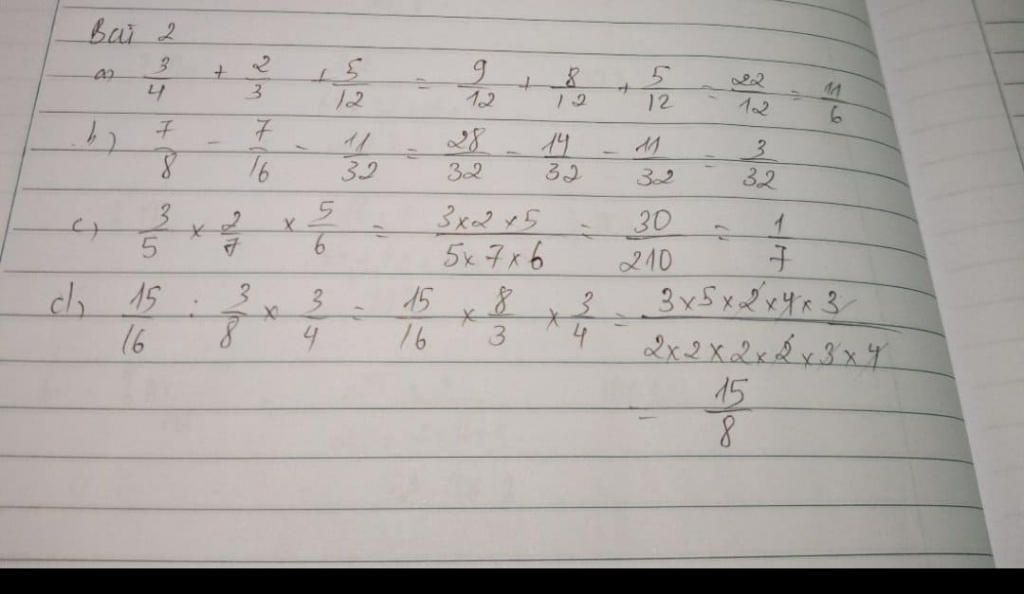 Bài 2
a) 3/4 + 2/3 + 5/12 = 9/12 + 8/12 + 5/12 = 22/12 = 11/6
b) 7/8 - 7/16 - 11/32 = 28/32 - 14/32 - 11/32 = 3/32
c) 3/5 × 2/7 × 5/6 = 3×2×5/5×7×6 = 30/210 = 1/7
d) 15/16 : 3/8 × 3/4 = 15/16 × 8/3 × 3/4 = 3×5×2×4×3/2×2×2×2×3×4
= 15/8